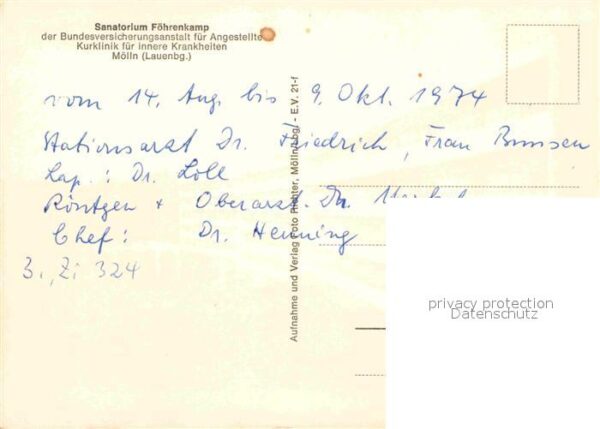 Sanatorium Föhrenkamp
der Bundesversicherungsanstalt für Angestellte
Kurklinik für innere Krankheiten
Mölln (Lauenbg.)
vom 14. Aug. bis 9. Okt. 1974
Stationsarzt Dr. Friedrich, Frau Bunsen
Kap.: Dr. Löll
Röntgen + Oberarzt. Dr.
Chef: Dr. Henning
3., Zi 324
Aufnahme und Verlag Foto Richter, Mölln/Lbg. - E.V. 21-f
privacy protection
Datenschutz